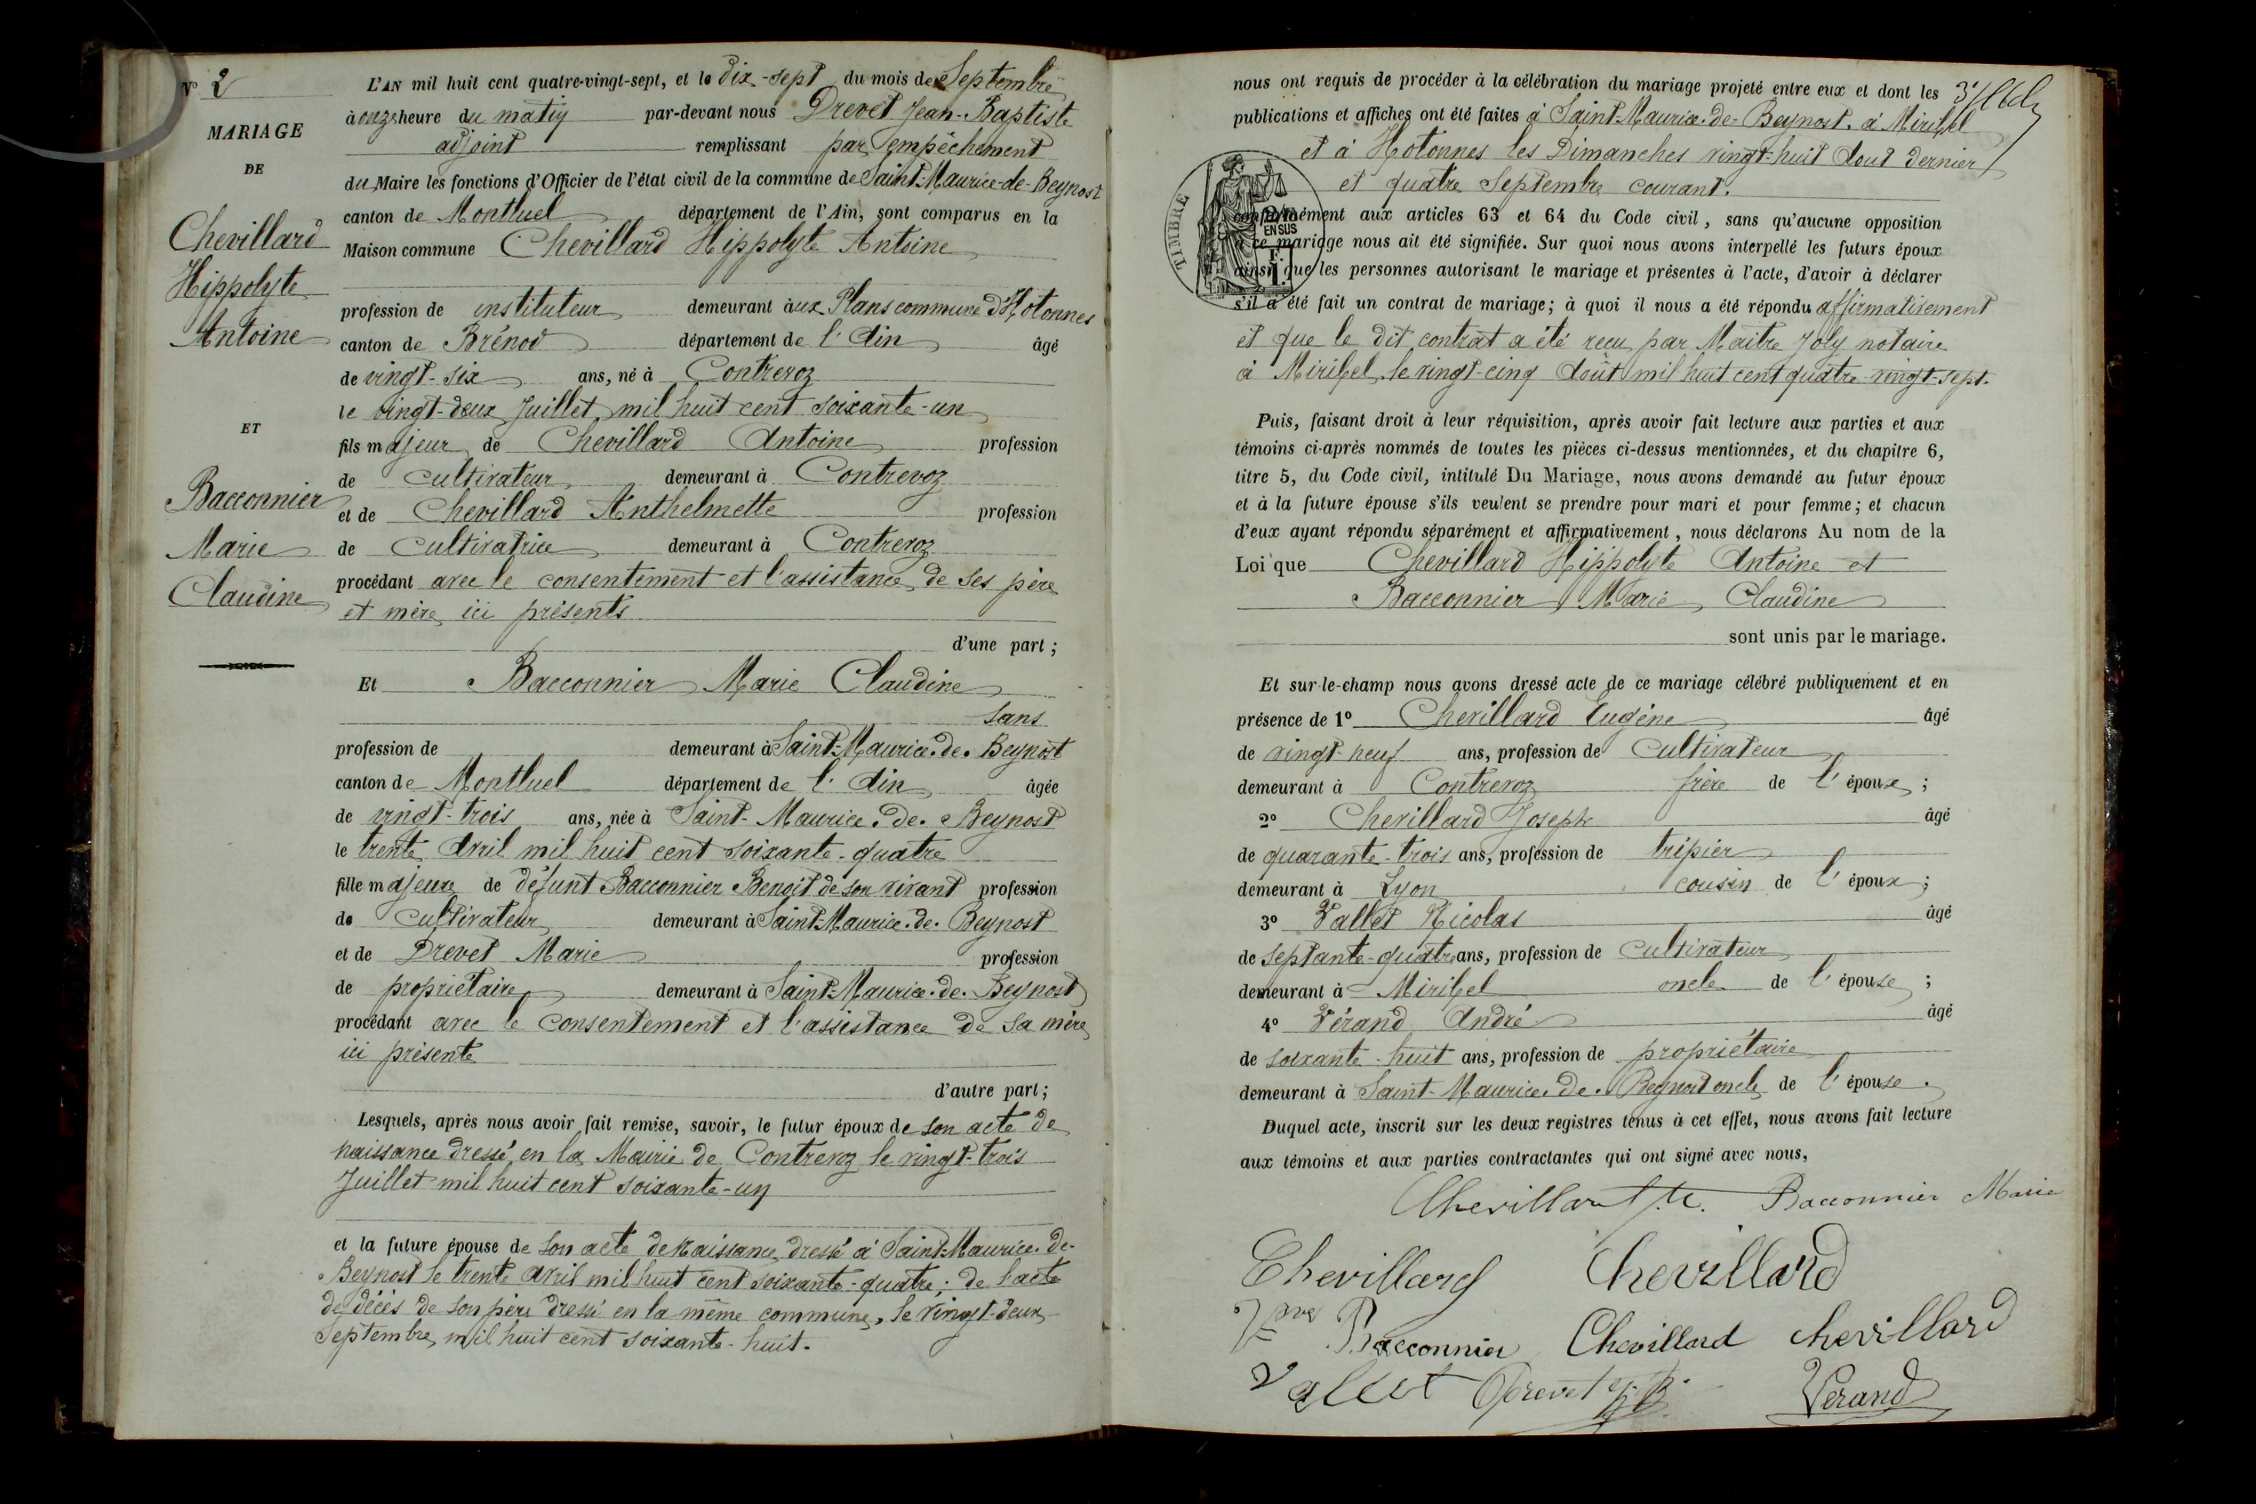 N° 2
MARIAGE
DE
Chevillard
Hippolyte
Antoine
ET
Bacconnier
Marie
Claudine
L'AN mil huit cent quatre-vingt-sept, et le dix-sept du mois de Septembre
à onze heure du matin par-devant nous Drevet Jean-Baptiste
adjoint remplissant par empêchement
du Maire les fonctions d'Officier de l'état civil de la commune de Saint-Maurice-de-Beynost
canton de Montluel département de l'Ain, sont comparus en la
Maison commune Chevillard Hippolyte Antoine
profession de instituteur demeurant aux Plans commune d'Hotonnes
canton de Brénod département de l'Ain âgé
de vingt-six ans, né à Contrevoz
le vingt-deux Juillet mil huit cent soixante-un
fils majeur de Chevillard Antoine profession
de cultivateur demeurant à Contrevoz
et de Chevillard Anthelmette profession
de cultivatrice demeurant à Contrevoz
procédant avec le consentement et l'assistance de ses père
et mère ici présents
d'une part ;
Et Bacconnier Marie Claudine
sans
profession de demeurant à Saint-Maurice-de-Beynost
canton de Montluel département de l'Ain âgée
de vingt-trois ans, née à Saint-Maurice-de-Beynost
le trente Avril mil huit cent soixante-quatre
fille majeure de défunt Bacconnier Benoit de son vivant profession
de cultivateur demeurant à Saint-Maurice-de-Beynost
et de Drevet Marie profession
de propriétaire demeurant à Saint-Maurice-de-Beynost
procédant avec le consentement et l'assistance de sa mère
ici présente
d'autre part ;
Lesquels, après nous avoir fait remise, savoir, le futur époux de son acte de
naissance dressé en la Mairie de Contrevoz le vingt-trois
Juillet mil huit cent soixante-un
et la future épouse de son acte de naissance dressé à Saint-Maurice-de-
Beynost le trente Avril mil huit cent soixante-quatre ; de l'acte
de décès de son père dressé en la même commune, le vingt-deux
Septembre mil huit cent soixante-huit.
nous ont requis de procéder à la célébration du mariage projeté entre eux et dont les
publications et affiches ont été faites à Saint-Maurice-de-Beynost, à Miribel
et à Hotonnes les Dimanches vingt-huit Aout dernier
et quatre Septembre courant.
TIMBRE
EN SUS
conformément aux articles 63 et 64 du Code civil, sans qu'aucune opposition
à ce mariage nous ait été signifiée. Sur quoi nous avons interpellé les futurs époux
ainsi que les personnes autorisant le mariage et présentes à l'acte, d'avoir à déclarer
s'il a été fait un contrat de mariage ; à quoi il nous a été répondu affirmativement
et que le dit contrat a été reçu par Maître Joly notaire
à Miribel, le vingt-cinq Août mil huit cent quatre-vingt-sept.
Puis, faisant droit à leur réquisition, après avoir fait lecture aux parties et aux
témoins ci-après nommés de toutes les pièces ci-dessus mentionnées, et du chapitre 6,
titre 5, du Code civil, intitulé Du Mariage, nous avons demandé au futur époux
et à la future épouse s'ils veulent se prendre pour mari et pour femme ; et chacun
d'eux ayant répondu séparément et affirmativement, nous déclarons Au nom de la
Loi que Chevillard Hippolyte Antoine et
Bacconnier Marie Claudine
sont unis par le mariage.
Et sur-le-champ nous avons dressé acte de ce mariage célébré publiquement et en
présence de 1° Chevillard Eugène âgé
de vingt-neuf ans, profession de cultivateur
demeurant à Contrevoz frère de l'époux ;
2° Chevillard Joseph âgé
de quarante-trois ans, profession de tripier
demeurant à Lyon cousin de l'époux ;
3° Vallet Nicolas âgé
de septante-quatre ans, profession de cultivateur
demeurant à Miribel oncle de l'épouse ;
4° Vérand André âgé
de soixante-huit ans, profession de propriétaire
demeurant à Saint-Maurice-de-Beynost oncle de l'épouse.
Duquel acte, inscrit sur les deux registres tenus à cet effet, nous avons fait lecture
aux témoins et aux parties contractantes qui ont signé avec nous,
Chevillard Bacconnier Marie
Chevillard Chevillard
Bacconnier Chevillard chevillard
Vallet Drevet J. B. Verand